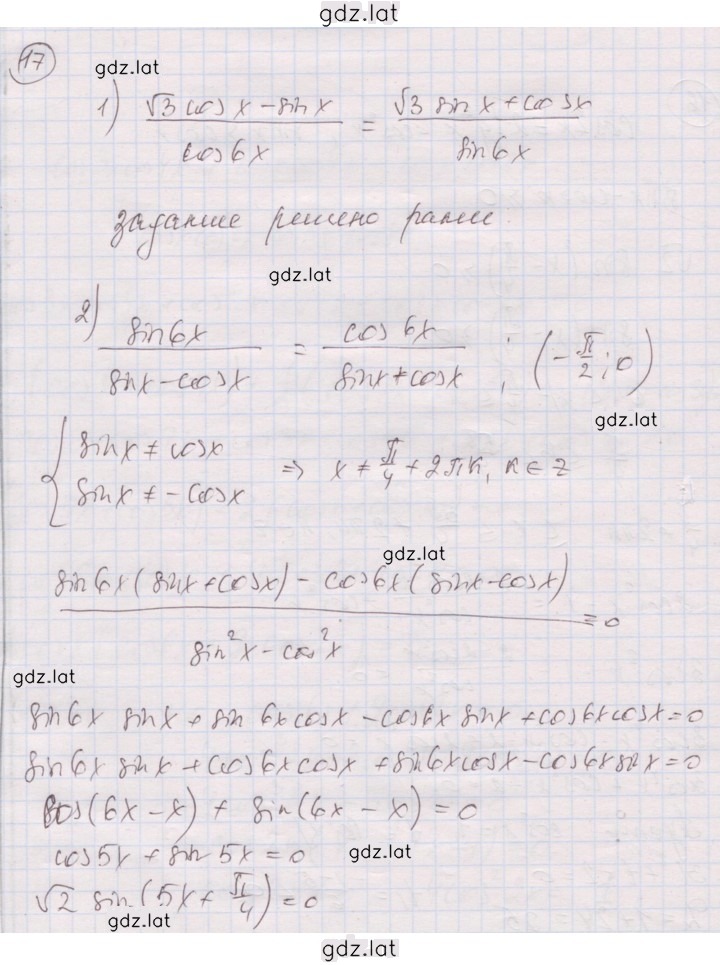 gdz.lat
17
gdz.lat
1) (√3 cos x - sin x)/(cos 6x) = (√3 sin x + cos x)/(sin 6x)
задание решено ранее
gdz.lat
2) (sin 6x)/(sin x - cos x) = (cos 6x)/(sin x + cos x) ; (-π/2; 0)
gdz.lat
{ sin x ≠ cos x
sin x ≠ - cos x ⇒ x ≠ π/4 + 2πk, k ∈ z
gdz.lat
(sin 6x (sin x + cos x) - cos 6x (sin x - cos x))/(sin²x - cos²x) = 0
gdz.lat
sin 6x sin x + sin 6x cos x - cos 6x sin x + cos 6x cos x = 0
sin 6x sin x + cos 6x cos x + sin 6x cos x - cos 6x sin x = 0
cos(6x - x) + sin(6x - x) = 0
cos 5x + sin 5x = 0
gdz.lat
√2 sin(5x + π/4) = 0
gdz.lat
gdz.lat